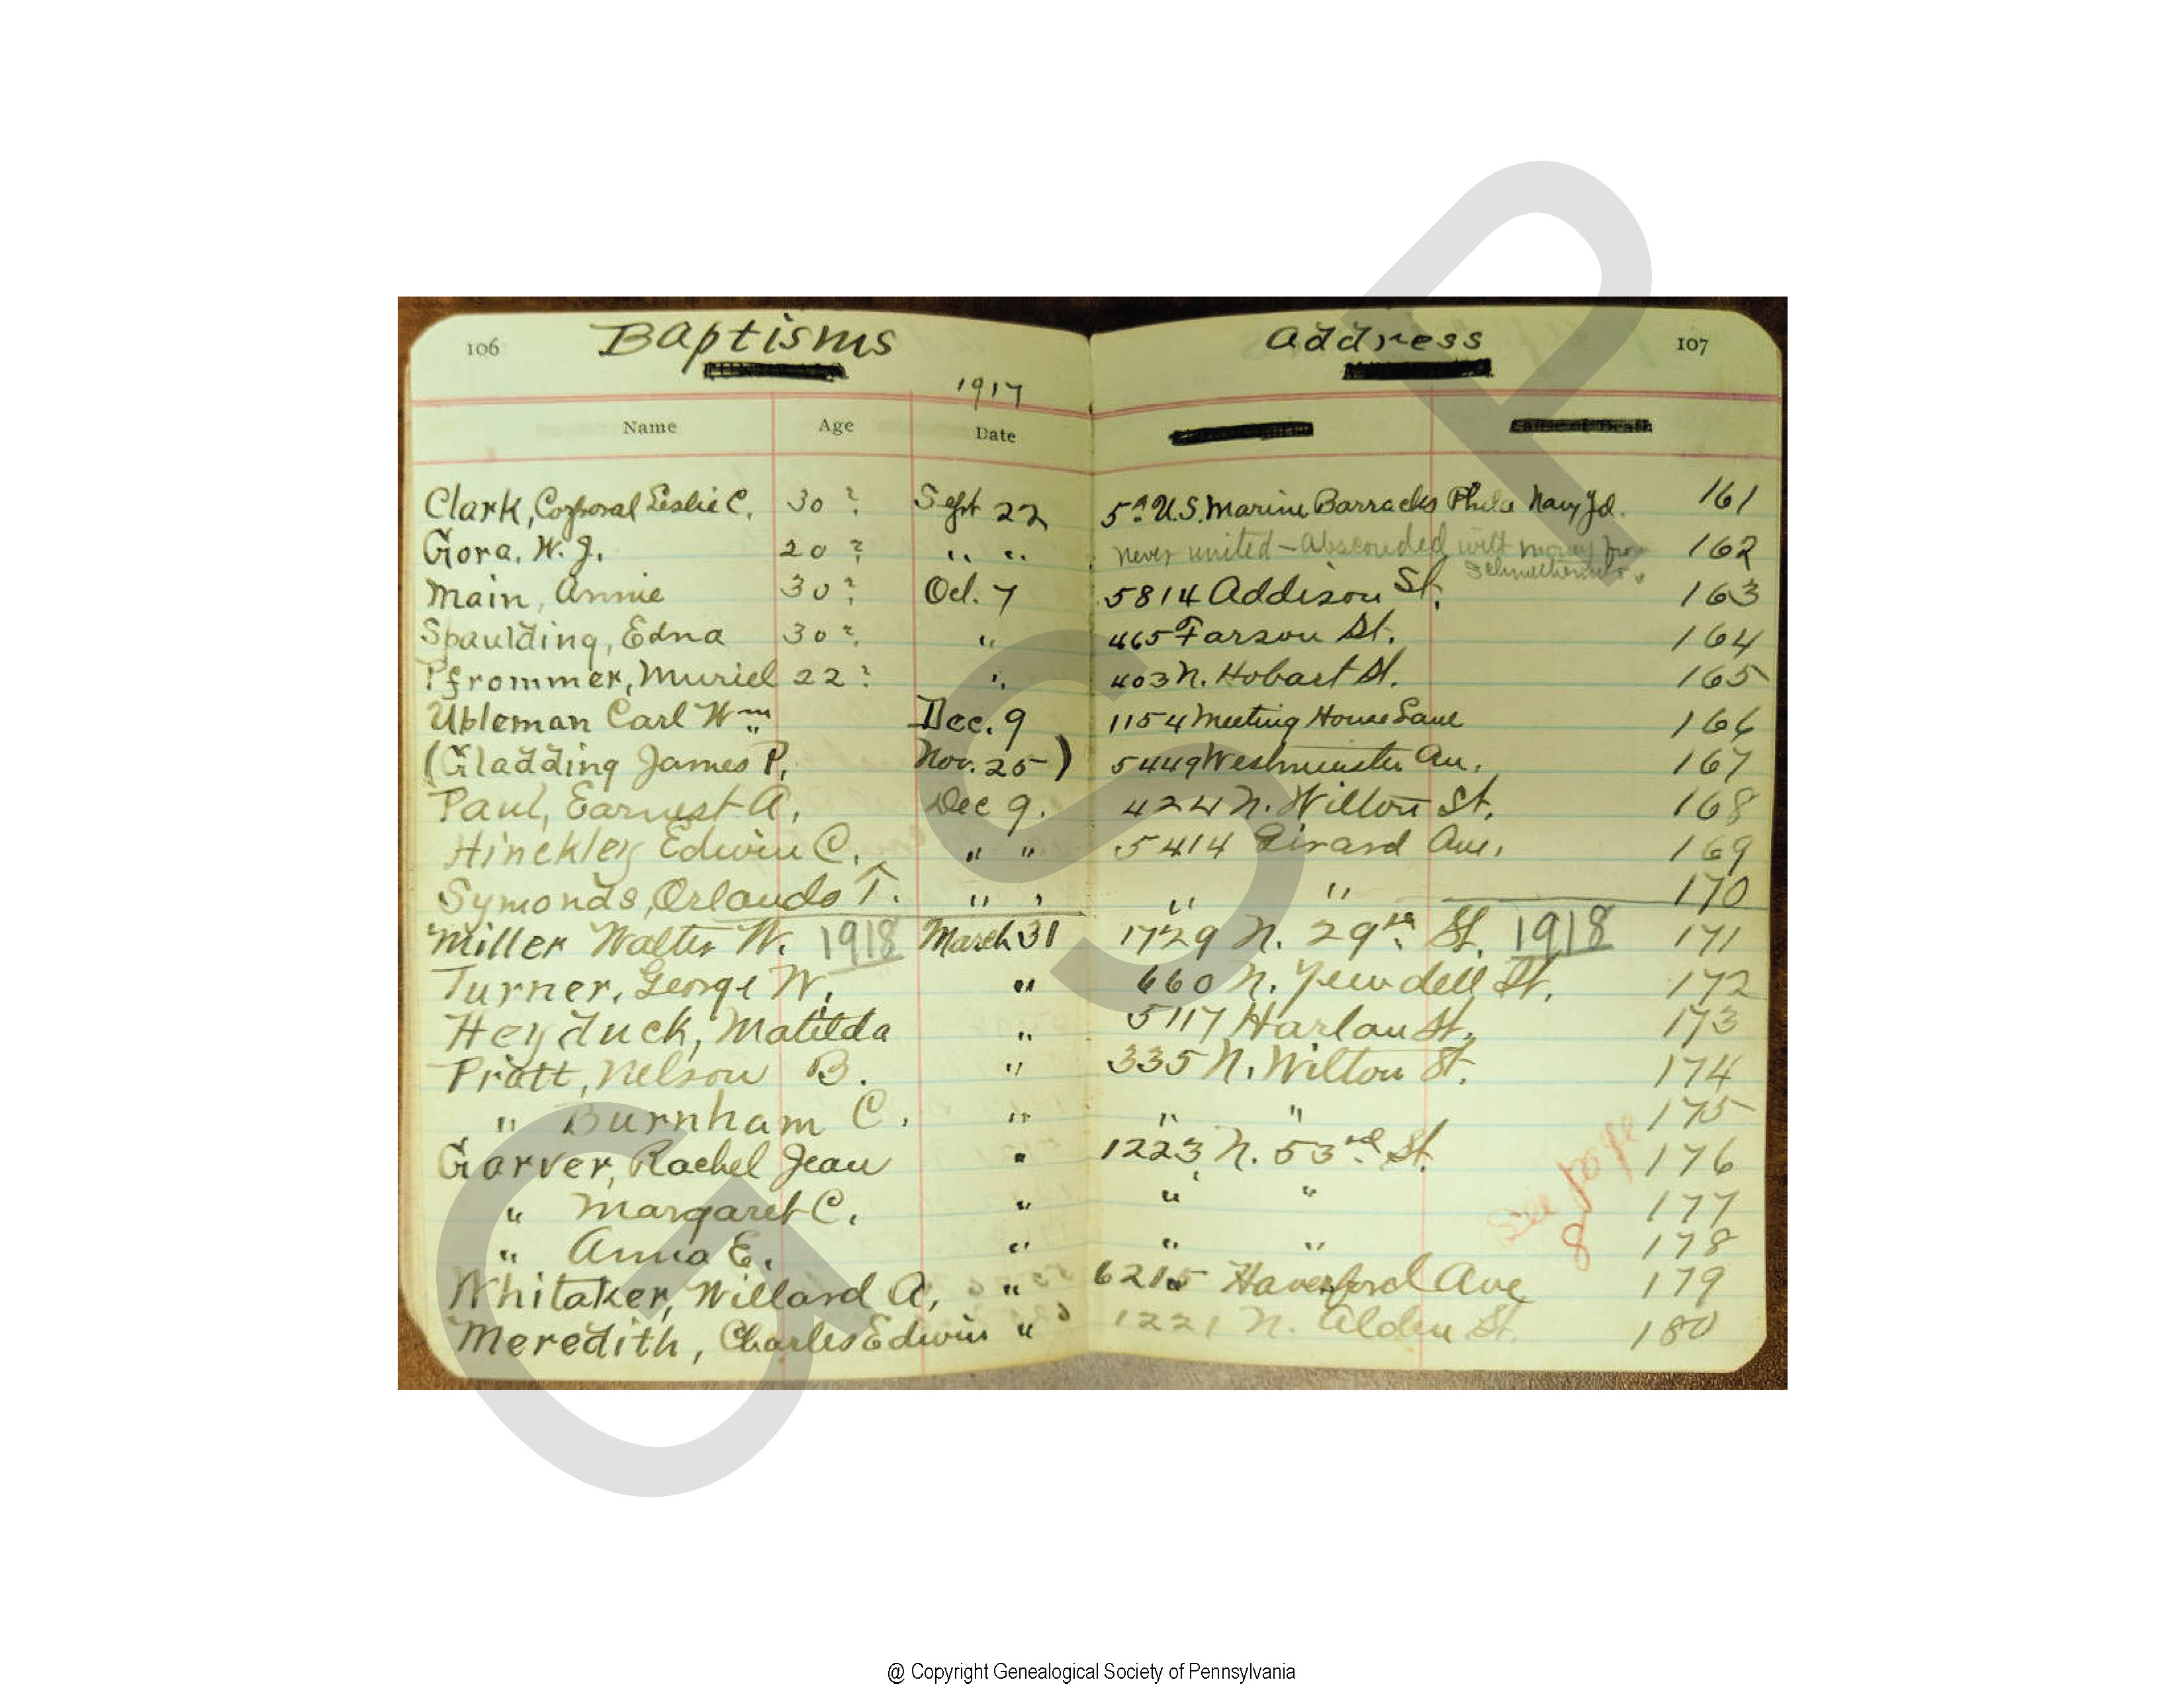 106 Baptisms
1917
Name Age Date
Clark, Corporal Leslie C. 30 ? Sept 22
Gora, W. J. 20 ? " "
Main, Annie 30 ? Oct. 7
Spaulding, Edna 30 ? "
Pfrommer, Muriel 22 ? "
Ubleman Carl Wm Dec. 9
(Gladding James P. Nov. 25)
Paul, Earnest A. Dec 9.
Hinckley Edwin C. " "
Symonds, Orlando T. " "
Miller Walter W. 1918 March 31
Turner, George W. "
Heyduck, Matilda "
Pratt, Nelson B. "
" Burnham C. "
Garver, Rachel Jean "
" Margaret C. "
" Anna E. "
Whitaker, Willard A. "
Meredith, Charles Edwin "
Address 107
Cause of Death
U.S. Marine Barracks Phila Navy Yd. 161
never united - Absconded with money from 162
5814 Addison St. 163
465 Farson St. 164
403 N. Hobart St. 165
1154 Meeting House Lane 166
5449 Westminster Av. 167
424 N. Wilton St. 168
5414 Girard Ave. 169
" " 170
1729 N. 29th St. 1918 171
660 N. Yewdell St. 172
5117 Harlan St. 173
335 N. Wilton St. 174
" " 175
1223 N. 53rd St. 176
" " 177
" " 178
See page 8
6215 Haverford Ave 179
1221 N. Alden St. 180
GSP
@ Copyright Genealogical Society of Pennsylvania